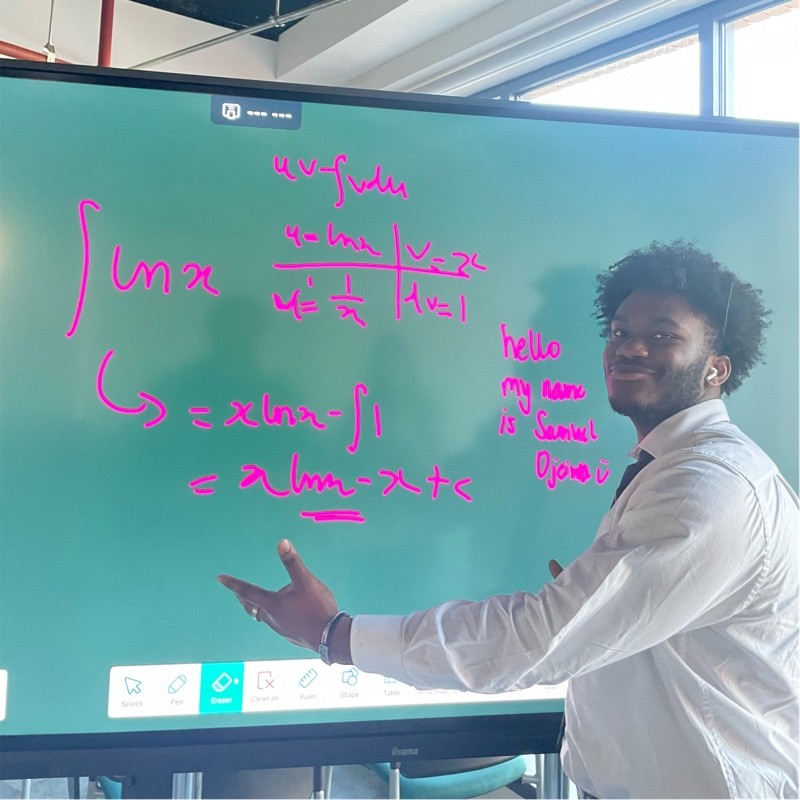 uv-∫vdu
∫ lnx
u=lnx | v=x
u'=1/x | dv=1
= xlnx - ∫1
= xlnx - x + c
hello
my name
is Samuel
Select
Pen
Eraser
Clean all
Ruler
Shape
Table
iiyama